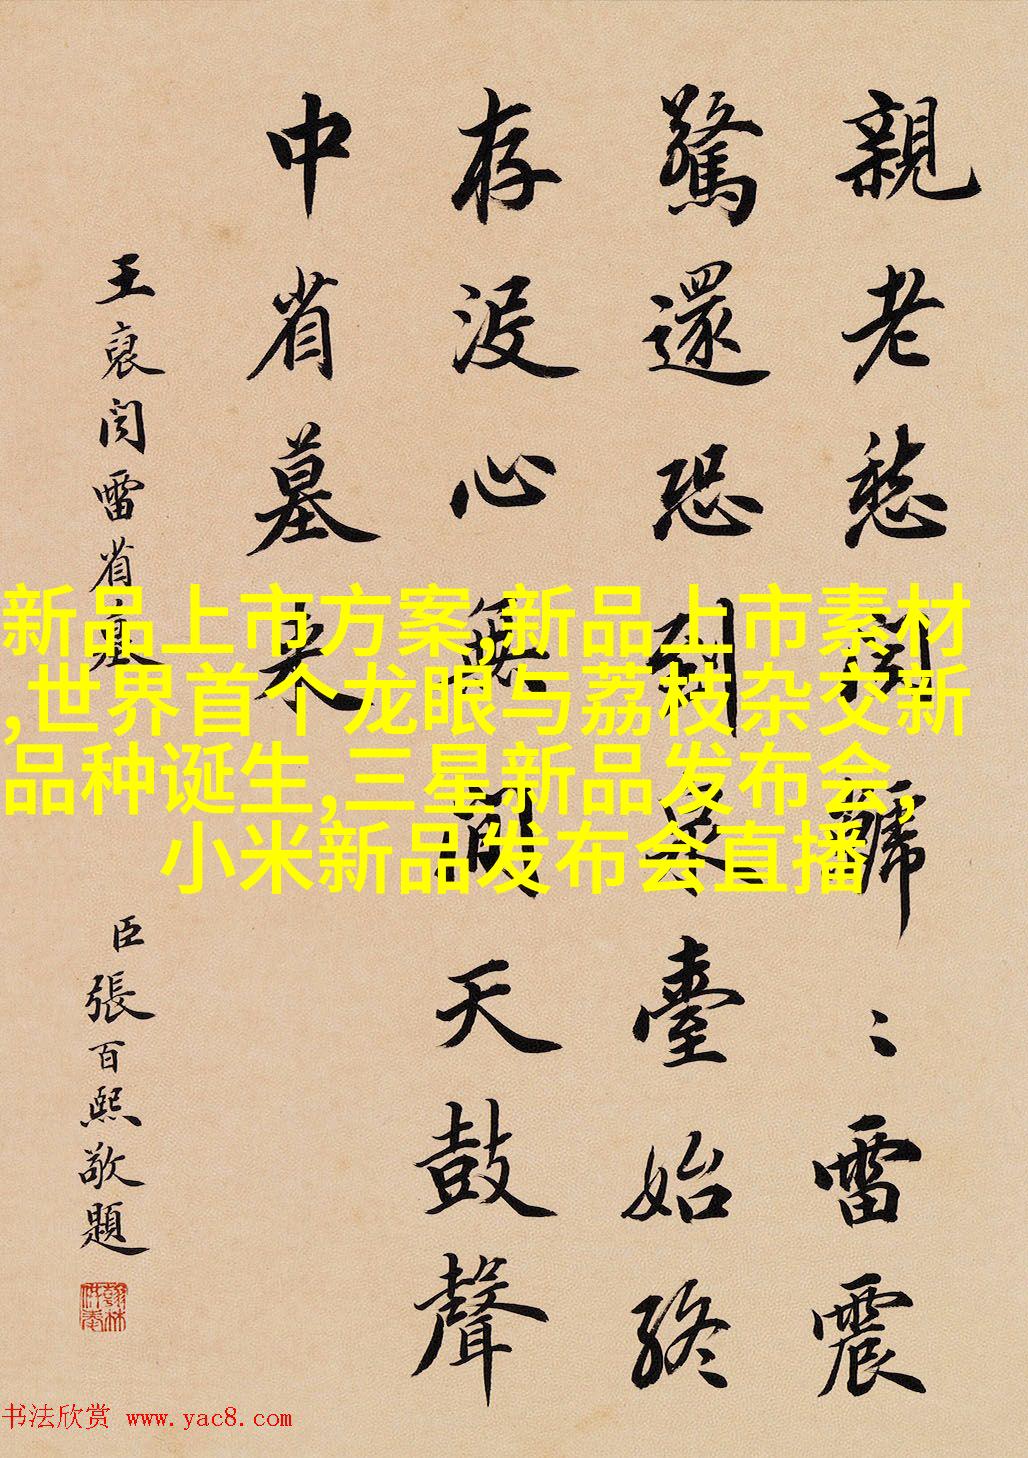 親老愁聞虩〻雷震
驚還恐到泉臺始終
存没心無間天鼓聲
中省墓来
王裒聞雷省墓
臣張百熙敬題
翰林
供奉
新品上市方案,新品上市素材
,世界首个龙眼与荔枝杂交新
品种诞生,三星新品发布会,
小米新品发布会直播
书法欣赏 www.yac8.com